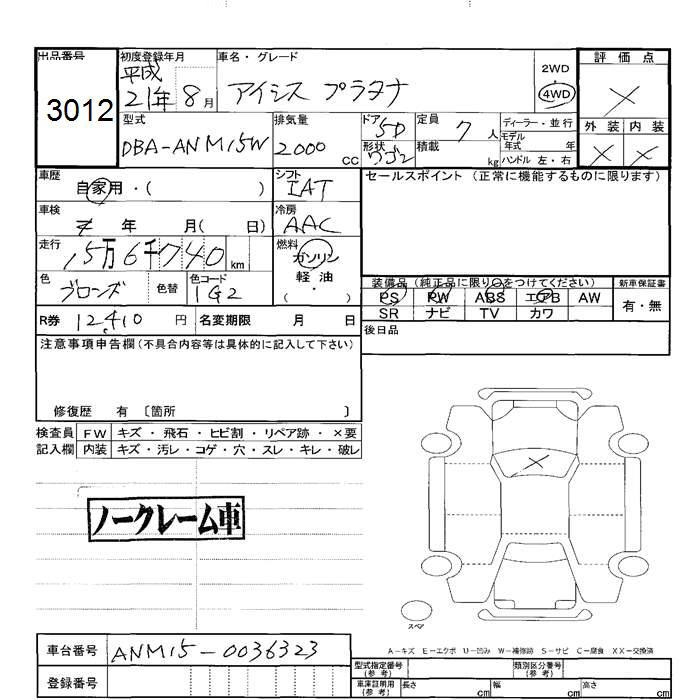 出品番号 初度登録年月 車名・グレード 評価点
3012
平成 21年8月 アイシス プラタナ 2WD・4WD ×
外装 内装
× ×
型式 排気量 ドア 5D 定員 7 人 ディーラー・並行
DBA-ANM15W 2000 cc 形状 ワゴン 積載 kg モデル年式 年
ハンドル 左・右
車歴 シフト セールスポイント (正常に機能するものに限ります)
自家用・( ) IAT
車検 年 月( 日) 冷房 AAC
走行 15万6千740 km 燃料 ガソリン
軽油
( ・ )
色 ブロンズ 色替 色コード 1G2
装備品 (純正品に限り○をつけてください) 新車保証書
PS PW ABS エアB AW 有・無
SR ナビ TV カワ
R券 12,410 円 名変期限 月 日
後日品
注意事項申告欄 (不具合内容等は具体的に記入して下さい)
修復歴 有 〔箇所 〕
検査員 FW キズ・飛石・ヒビ割・リペア跡・×要
記入欄 内装 キズ・汚レ・コゲ・穴・スレ・キレ・破レ
×
ノークレーム車
スペア
A-キズ E-エクボ U-凹み W-補修跡 S-サビ C-腐食 XX-交換済
車台番号 ANM15-0036323
登録番号
型式指定番号 (参考) 類別区分番号 (参考)
車庫証明用 (参考) 長さ cm 幅 cm 高さ cm